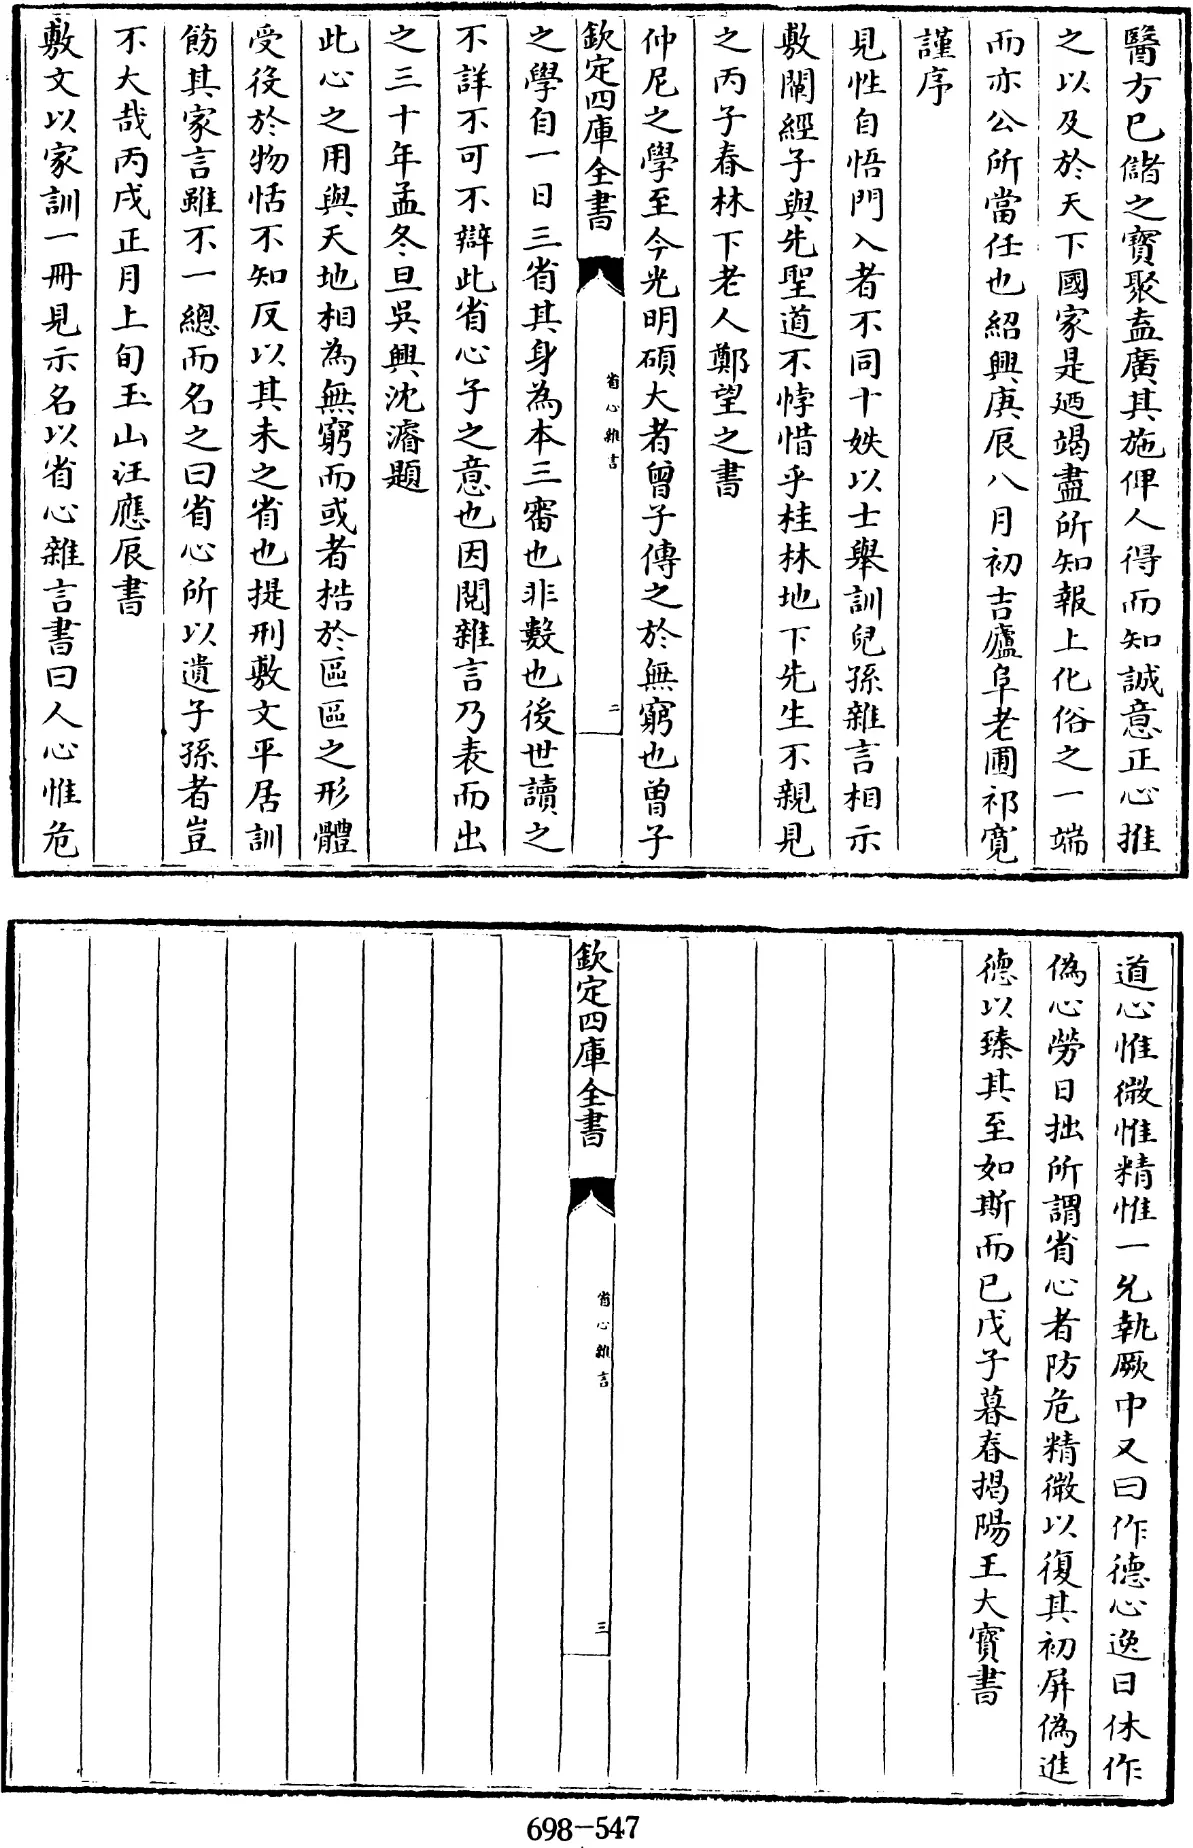 醫方已儲之寳聚盍廣其施俾人得而知誠意正心推
之以及於天下國家是廼竭盡所知報上化俗之一端
而亦公所當任也紹興庚辰八月初吉廬阜老圃祁寛
謹序
見性自悟門入者不同十妷以士舉訓兒孫雜言相示
敷闡經子與先聖道不悖惜乎桂林地下先生不親見
之丙子春林下老人鄭望之書
仲尼之學至今光明碩大者曾子傳之於無窮也曽子
欽定四庫全書
省心雜言
二
之學自一日三省其身為本三審也非數也後世讀之
不詳不可不辯此省心子之意也因閲雜言乃表而出
之三十年孟冬旦吳興沈濬題
此心之用與天地相為無窮而或者梏於區區之形體
受役於物恬不知反以其未之省也提刑敷文平居訓
飭其家言雖不一總而名之曰省心所以遺子孫者豈
不大哉丙戌正月上旬玉山汪應辰書
敷文以家訓一冊見示名以省心雜言書曰人心惟危
道心惟微惟精惟一允執厥中又曰作德心逸日休作
偽心勞日拙所謂省心者防危精微以復其初屏偽進
德以臻其至如斯而已戊子暮春揭陽王大寳書
欽定四庫全書
省心雜言
三
698-547